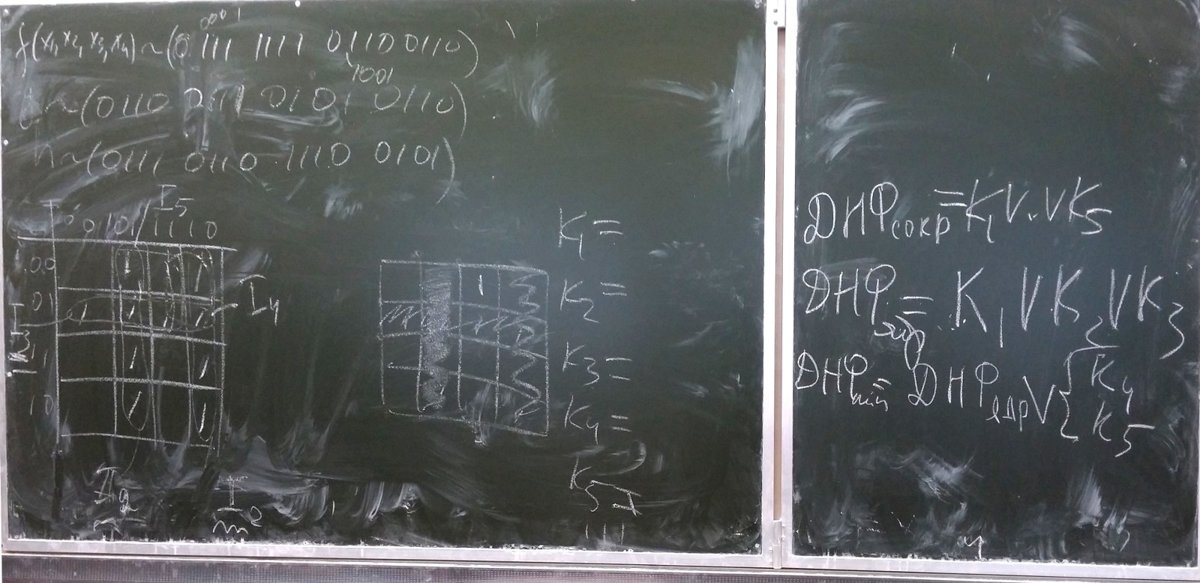 0001
f(x₁, x₂, x₃, x₄) ~ (0111 1111 0110 0110)
1001
~ (0110 0111 0101 0110)
h ~ (0111 0110 1110 0101)
I₅
00 01 11 10
00 1 1 1
01 I₄
11 1 1
10 1 1
1
K₁ =
K₂ =
K₃ =
K₄ =
K₅
ДНФсокр = K₁ V..V K₅
ДНФядр = K₁ V K₂ V K₃
ДНФмин = ДНФядр V { K₄
K₅